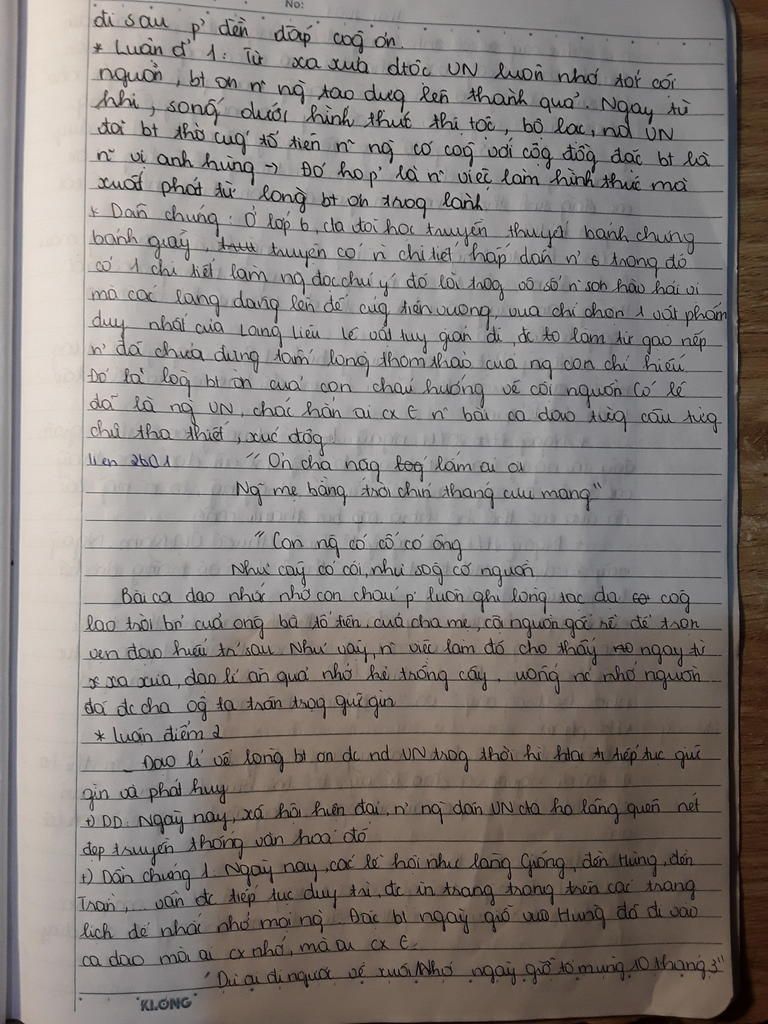 No:
đi sâu p' đền đáp cog ơn.
* Luận đ' 1: Từ xa xưa dtộc VN luôn nhớ tới cội
nguồn, bt ơn n~ ng tạo dựng lên thành quả. Ngay từ
khi, sống dưới hình thức thị tộc, bộ lạc, nd VN
đã bt thờ cúg tổ tiên n~ ng có côg với cộg đồg đặc bt là
n~ vị anh hùng → Đó ko p' là n~ việc làm hình thức mà
xuất phát từ lòng bt ơn trog lành.
* Dẫn chứng: Ở lớp 6, cta đã học truyền thuyết bánh chưng
bánh giầy, truyện có n~ chi tiết hấp dẫn n' trong đó
có 1 chi tiết làm ng đọc chú ý đó là trog vô số n~ sơn hào hải vị
mà các lang dâng lên để cúg tiên vương, vua chỉ chọn 1 vật phẩm
duy nhất của Lang Liêu lễ vật tuy giản dị, đc to làm từ gạo nếp
n' đã chứa đựng tấm lòng thơm thảo của ng con chí hiếu
Đó là lòg bt ơn của con cháu hướng về cội nguồn Có lẽ
đã là ng VN, chắc hẳn ai cx € n~ bài ca dao từg câu từg
chữ tha thiết, xúc độg
liên 2601 " Ơn cha nặg lắm ai ơi
Ng~ mẹ bằng trời chín tháng cưu mang"
" Con ng có cố có ông
Như cây có cội, như sog có nguồn
Bài ca dao nhắc nhở con cháu p' luôn ghi lòng tạc dạ cog
lao trời bể của ong bà tổ tiên, của cha mẹ, cội nguồn gốc rễ để trọn
vẹn đạo hiếu tr' sau Như vậy, n~ việc làm đó cho thấy ngay từ
xa xưa, đạo lí ăn quả nhớ kẻ trồng cây, uống nc nhớ nguồn
đã đc cha ôg ta trân trọg giữ gìn
* Luận điểm 2
_ Đạo lí về lòng bt ơn đc nd VN trog thời kì htại tiếp tục giữ
gìn và phát huy
+) DD: Ngày nay, xã hội hiện đại, n' ng dân VN cta ko lãng quên nét
đẹp truyền thống văn hoá đó
+) Dẫn chứng 1. Ngày nay, các lễ hội như làng Gióng, đền Hùng, đền
Trần,... vẫn đc tiếp tục duy trì, đc in trang trọng trên các trang
lịch để nhắc nhở mọi ng. Đặc bt ngày giỗ vua Hùng đã đi vào
ca dao mà ai cx nhớ, mà ai cx €.
" Dù ai đi ngược về xuôi/Nhớ ngày giỗ tổ mùng 10 tháng 3"
KLONG